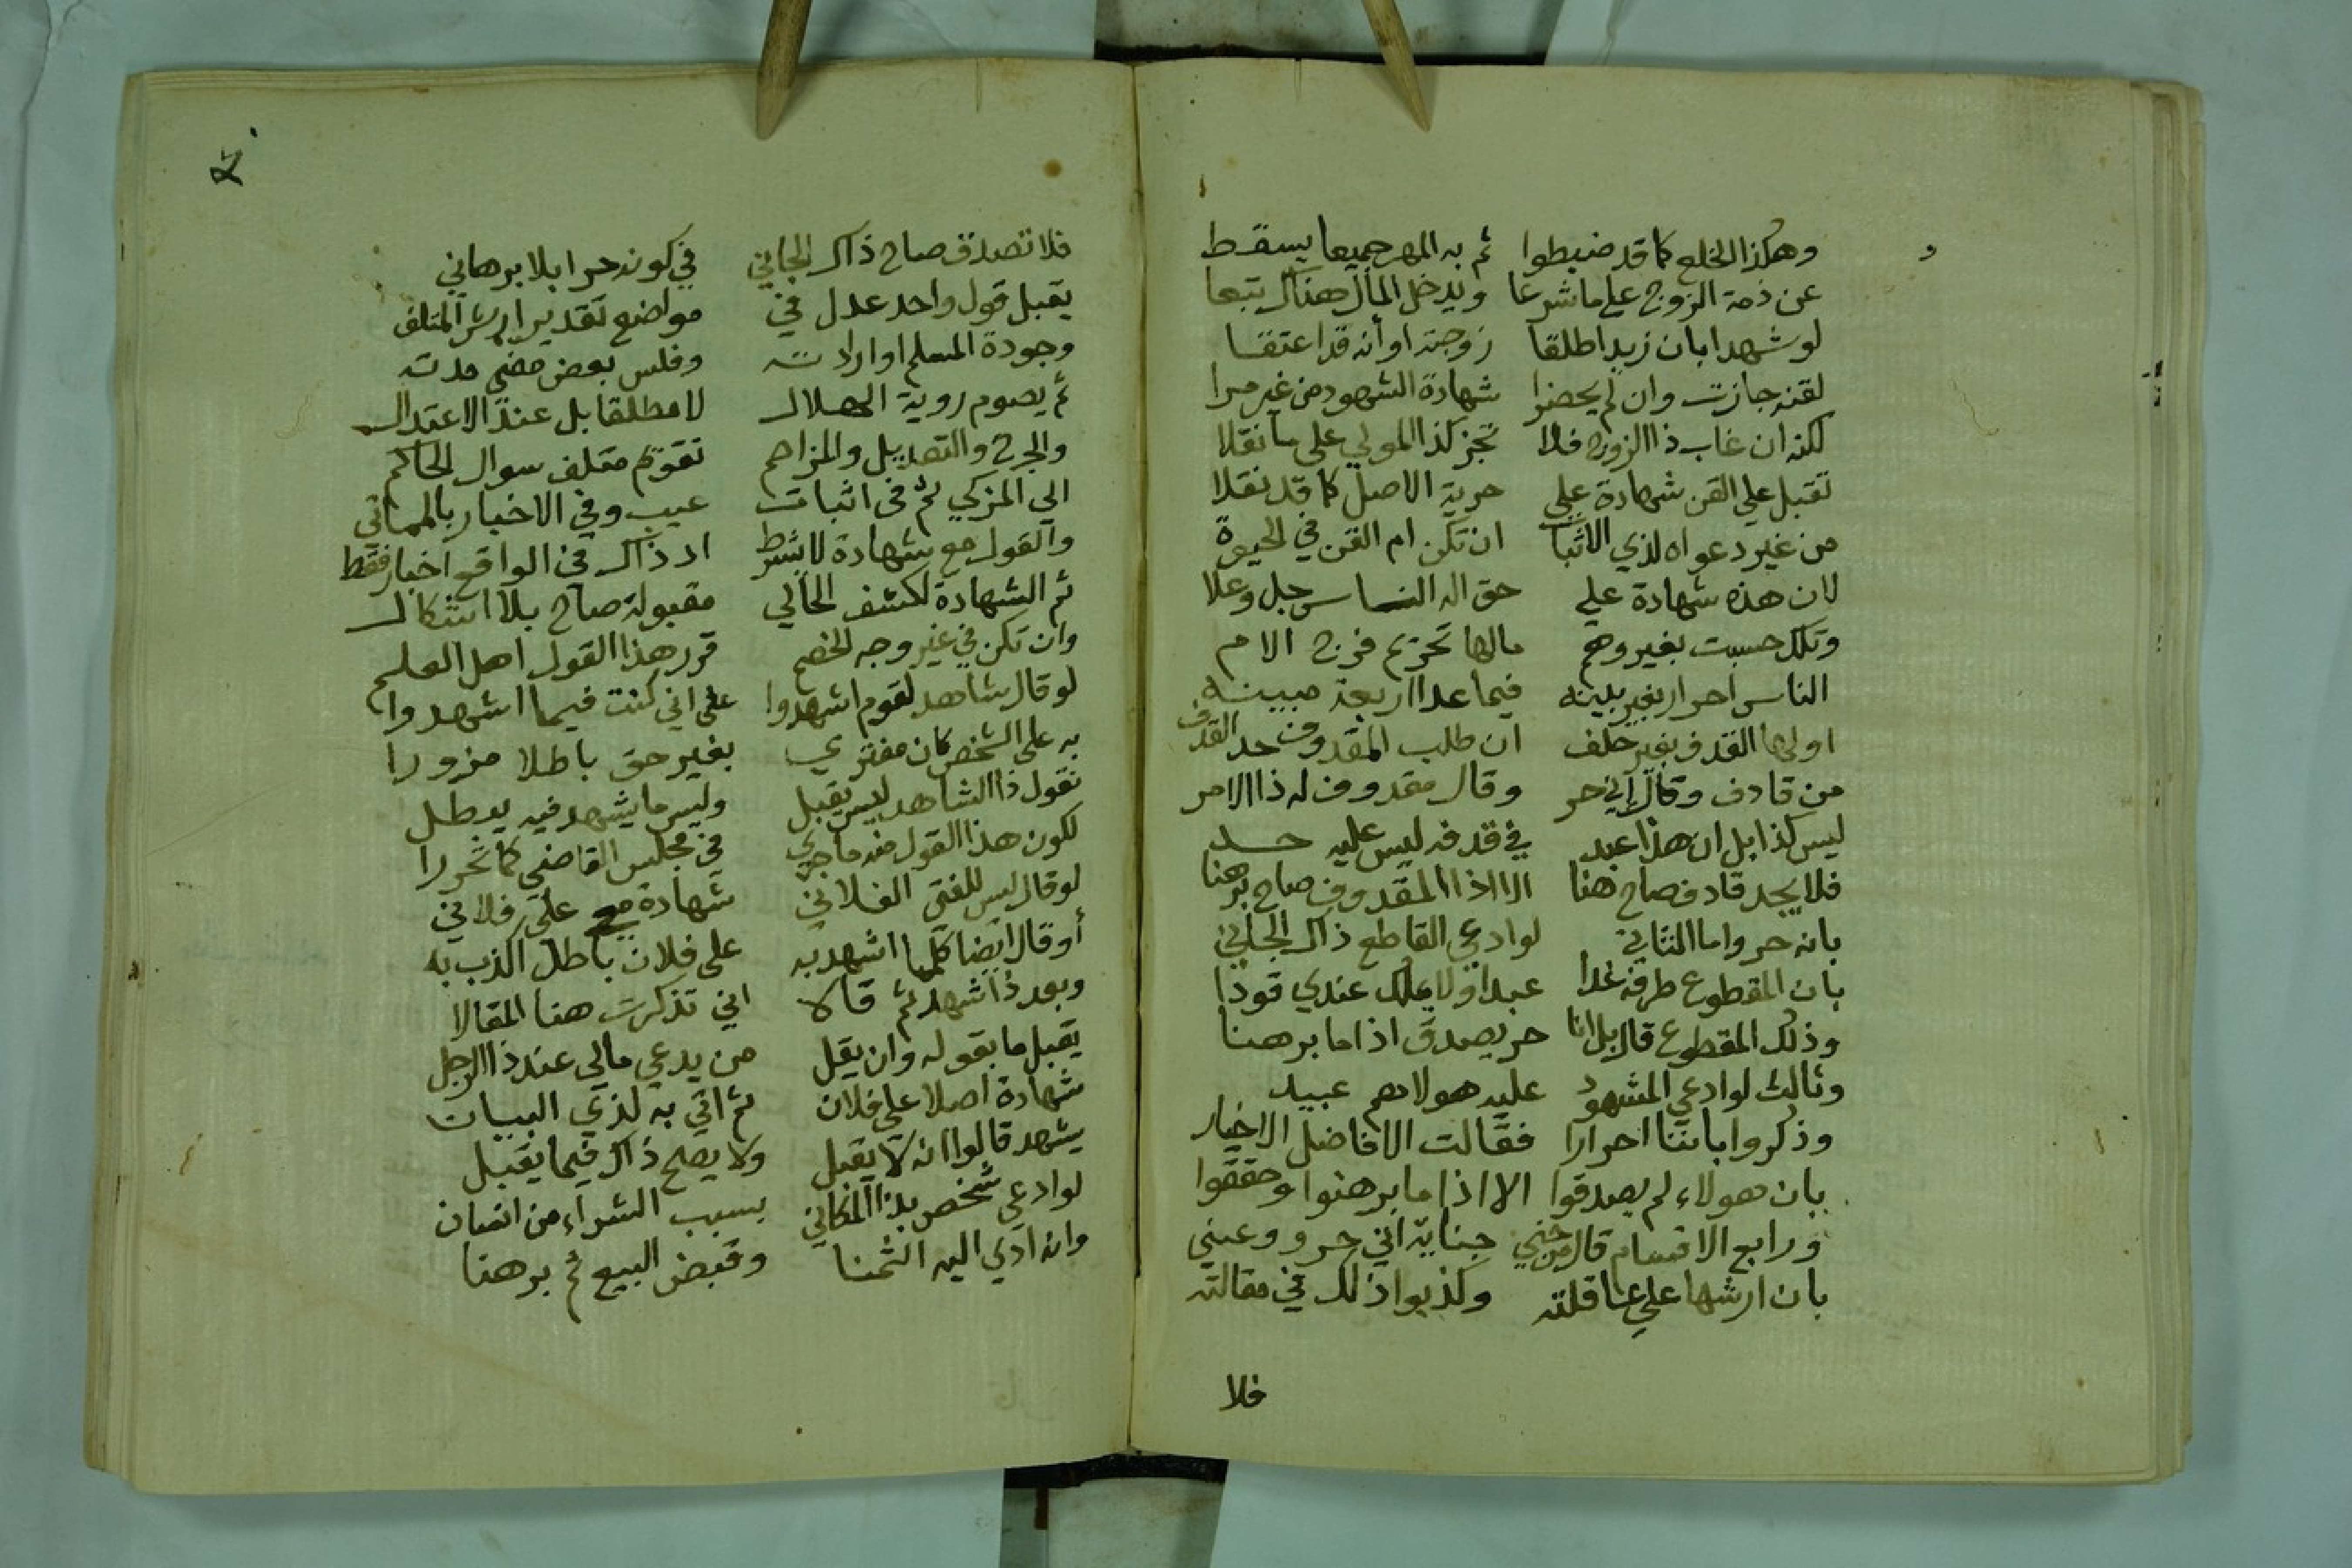 وهكذا الخلع كما قد ضبطوا ثم به المهر جميعا يسقط
عن ذمة الزوج على ما شرعا ويدخل المال هناك تبعا
لو شهدا بان زيدا طلقا زوجته او أنه قد اعتقا
لقنه جازت وان لم يحضرا شهادة الشهود من غير مرا
لكنه ان غاب ذا الزوج فلا تجز كذا المولي على ما نقلا
تقبل علي القن شهادة علي حرية الاصل كما قد نقلا
من غير دعواه لذي الاثبات ان تكن ام القن في الحيوة
لان هذه شهادة علي حق اله الناس جل وعلا
وتلك حسبت بغير وهم مالها تحريم فرج الام
الناس احرار بغير بينه فيما عدا اربعة مبينه
اولها القذف بغير حلف ان طلب المقذوف حد القذف
من قاذف وقال إني حر وقال مقذوف له ذا الامر
ليس كذا بل ان هذا عبد في قذفه ليس عليه حد
فلا يحد قاذف صاح هنا الا اذا المقذوف صاح برهنا
بانه حر واما الثاني لو ادعي القاطع ذاك الجاني
بان المقطوع طرفه غدا عبدا ولا يملك عندي قودا
وذلك المقطوع قال بل انا حر يصدق اذا ما برهنا
وثالث لو ادعي المشهود عليه هولاهم عبيد
وذكروا باننا احرارا فقالت الافاضل الاخيار
بان هولاء لم يصدقوا الا اذا ما برهنوا وحققوا
ورابع الاقسام قال من جني جناية اني حر وعني
بان ارشها علي عاقلته وكذبوا ذلك في مقالته
فلا
فلا تصدق صاح ذاك الجاني في كونه حرا بلا برهاني
يقبل قول واحد عدل في مواضع تقدير ارش المتلف
وجودة المسلم او اراداته وفلس بعض مضي مدته
ثم يصوم روية الهلال لا مطلقا بل عند الاعتدال
والجرح والتعديل والمزاحم تقوم متلف سوال الحاكم
الي المزكي ثم في اثبات عيب وفي الاخبار بالمماتي
والقول مع شهادة لا شرط اذ ذاك في الواقع اخبار فقط
ثم الشهادة لكشف الحالي مقبولة صاح بلا اشكال
وان تكن في غير وجه الخصم قرر هذا القول اهل العلم
لو قال شاهد لقوم اشهدوا على اني كنت فيما اشهدوا
به على الشخص كان مفتري بغير حق باطلا مزورا
نقول ذا الشاهد ليس يقبل وليس ما يشهد فيه يبطل
لكون هذا القول منه ما جري في مجلس القاضي كما تحررا
لو قال ليس للفتي الفلاني شهادة مع علي فلاني
أو قال ايضا كلما اشهد به على فلان باطل اكذب به
وبعد ذا شهد ثم قالا اني تذكرت هنا المقالا
يقبل ما يقوله وان يقل من يدعي مالي عند ذا الرجل
شهادة اصلا على فلان ثم اتي به لذي البيات
يشهد قالوا انه لا يقبل ولا يصلح ذاك فيما يقبل
لو ادعي شخص بذا المكاني بسبب الشراء من انسان
وانه ادي اليه الثمنا وقبض البيع ثم برهنا